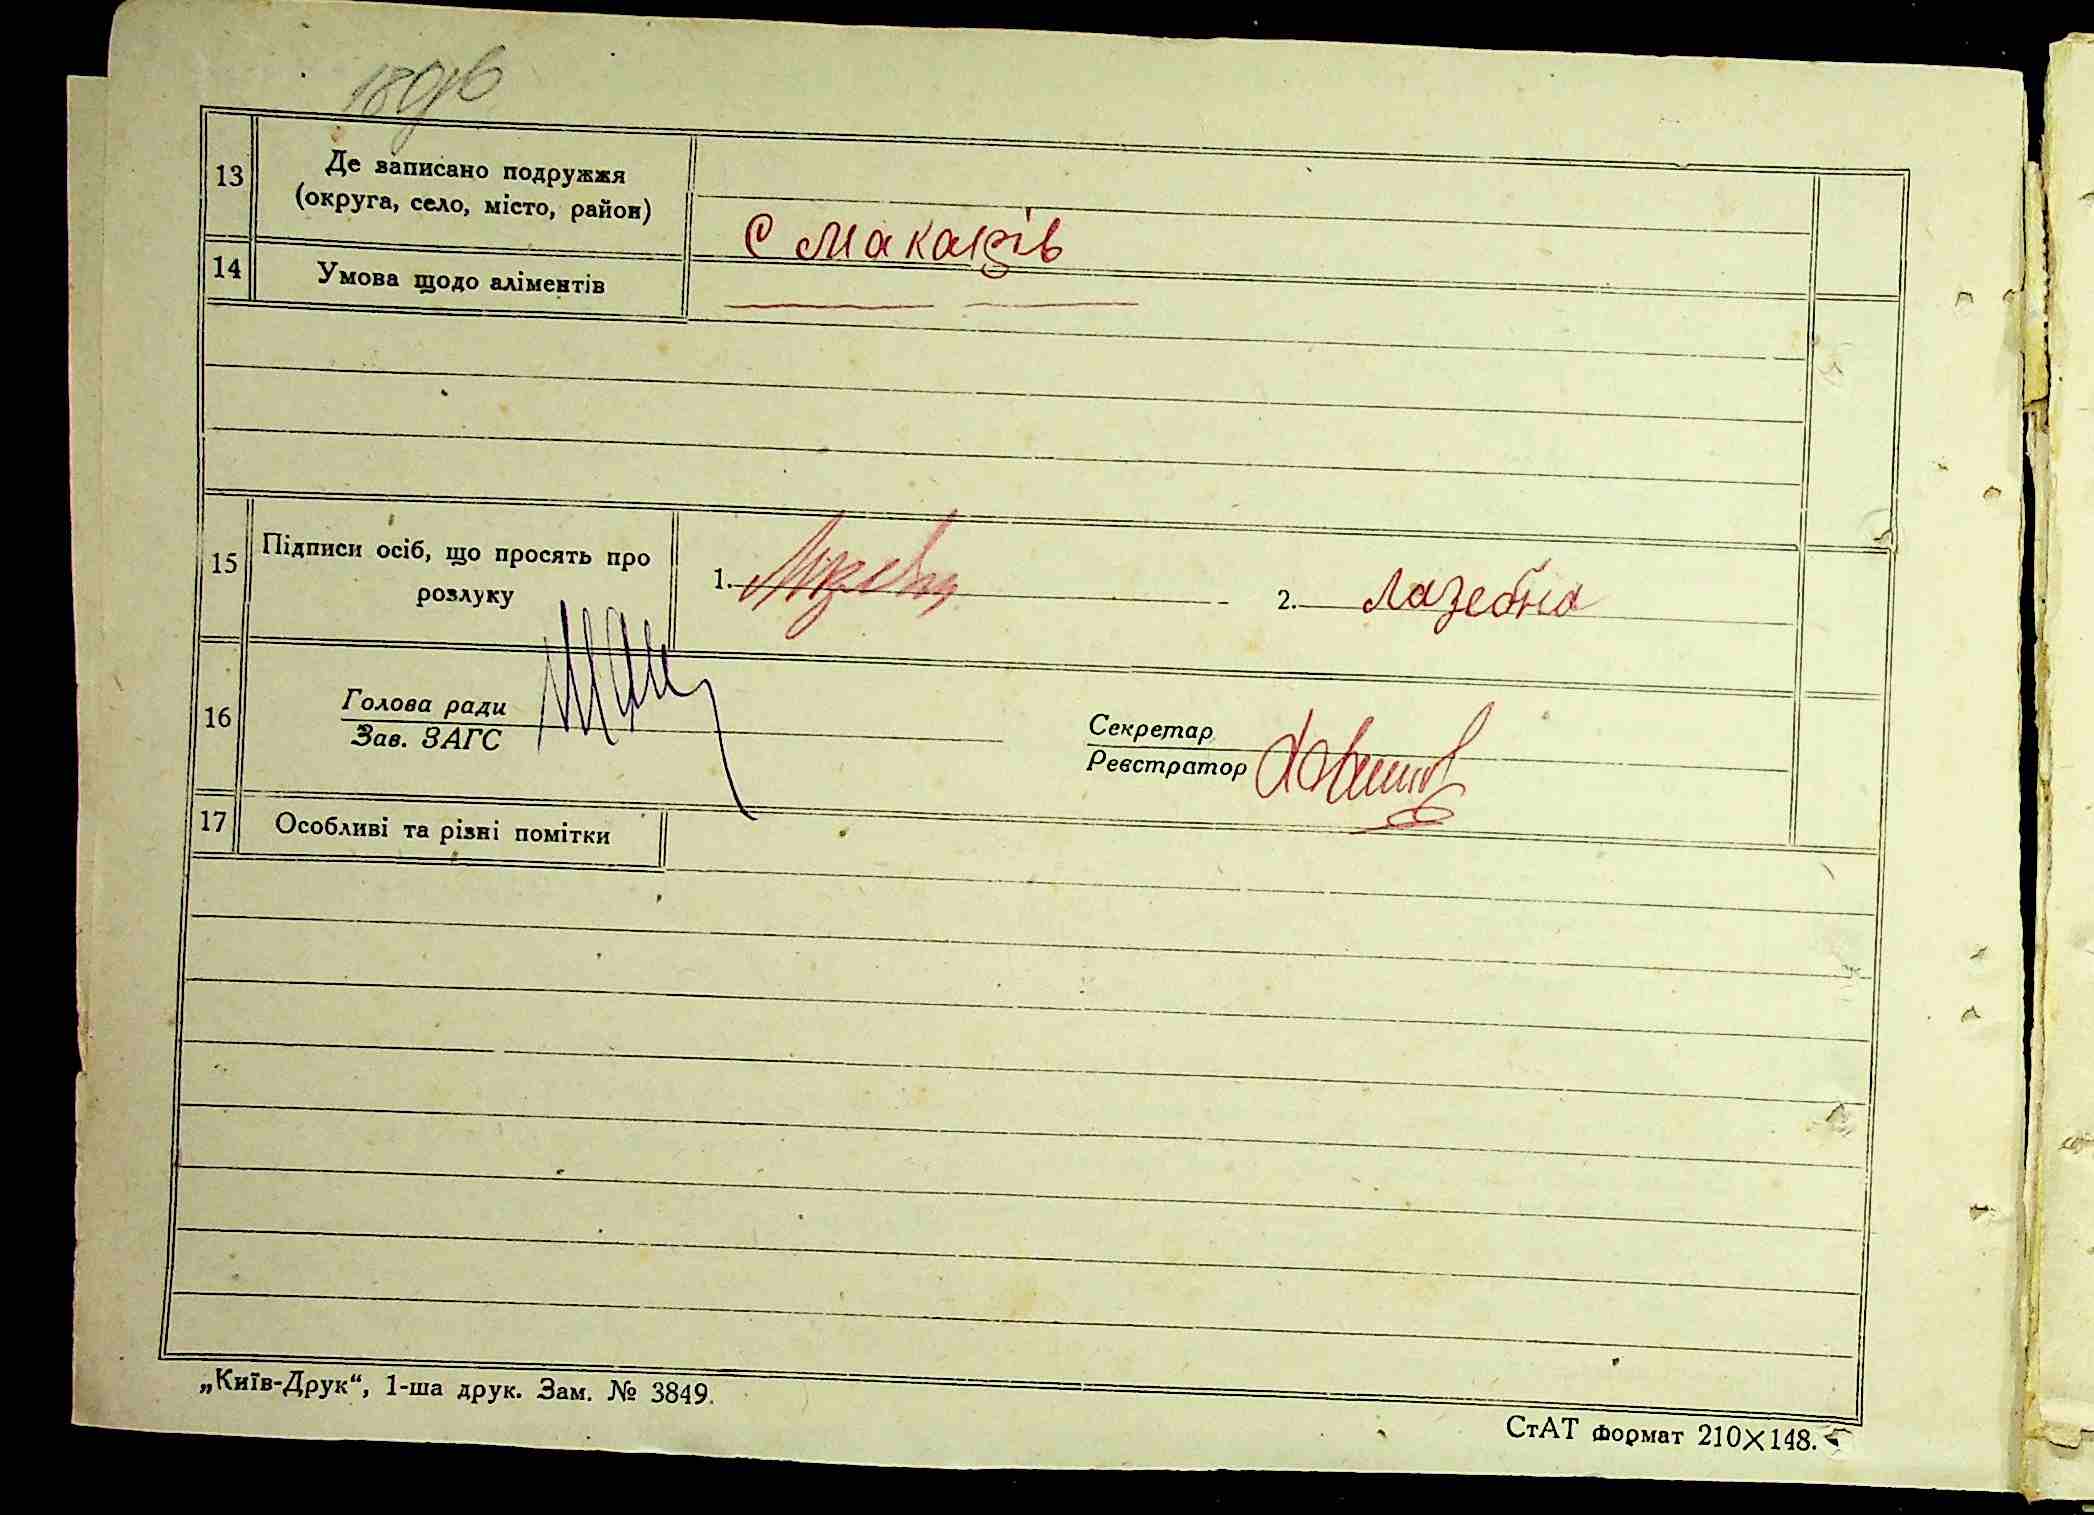 180зв
13
Де записано подружжя
(округа, село, місто, район)
с Макарів
14
Умова щодо аліментів
15
Підписи осіб, що просять про
розлуку
1.
2. Лазебна
16
Голова ради
Зав. ЗАГС
Секретар
Реєстратор
17
Особливі та різні помітки
„Київ-Друк“, 1-ша друк. Зам. № 3849.
СтАТ формат 210×148.